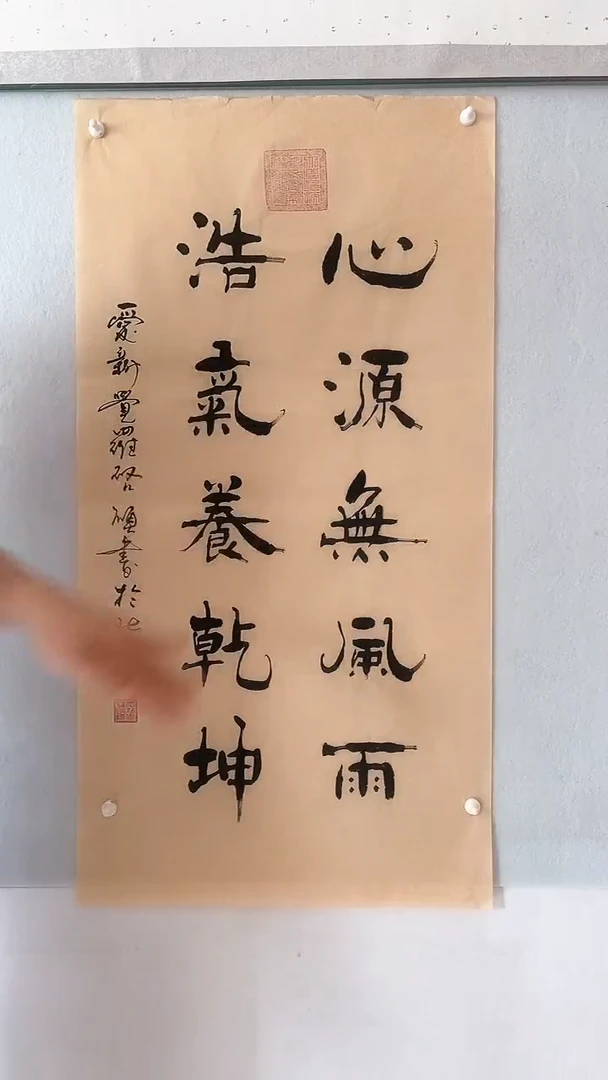 心源無風雨
浩氣養乾坤
愛新覺羅啓頑書於北